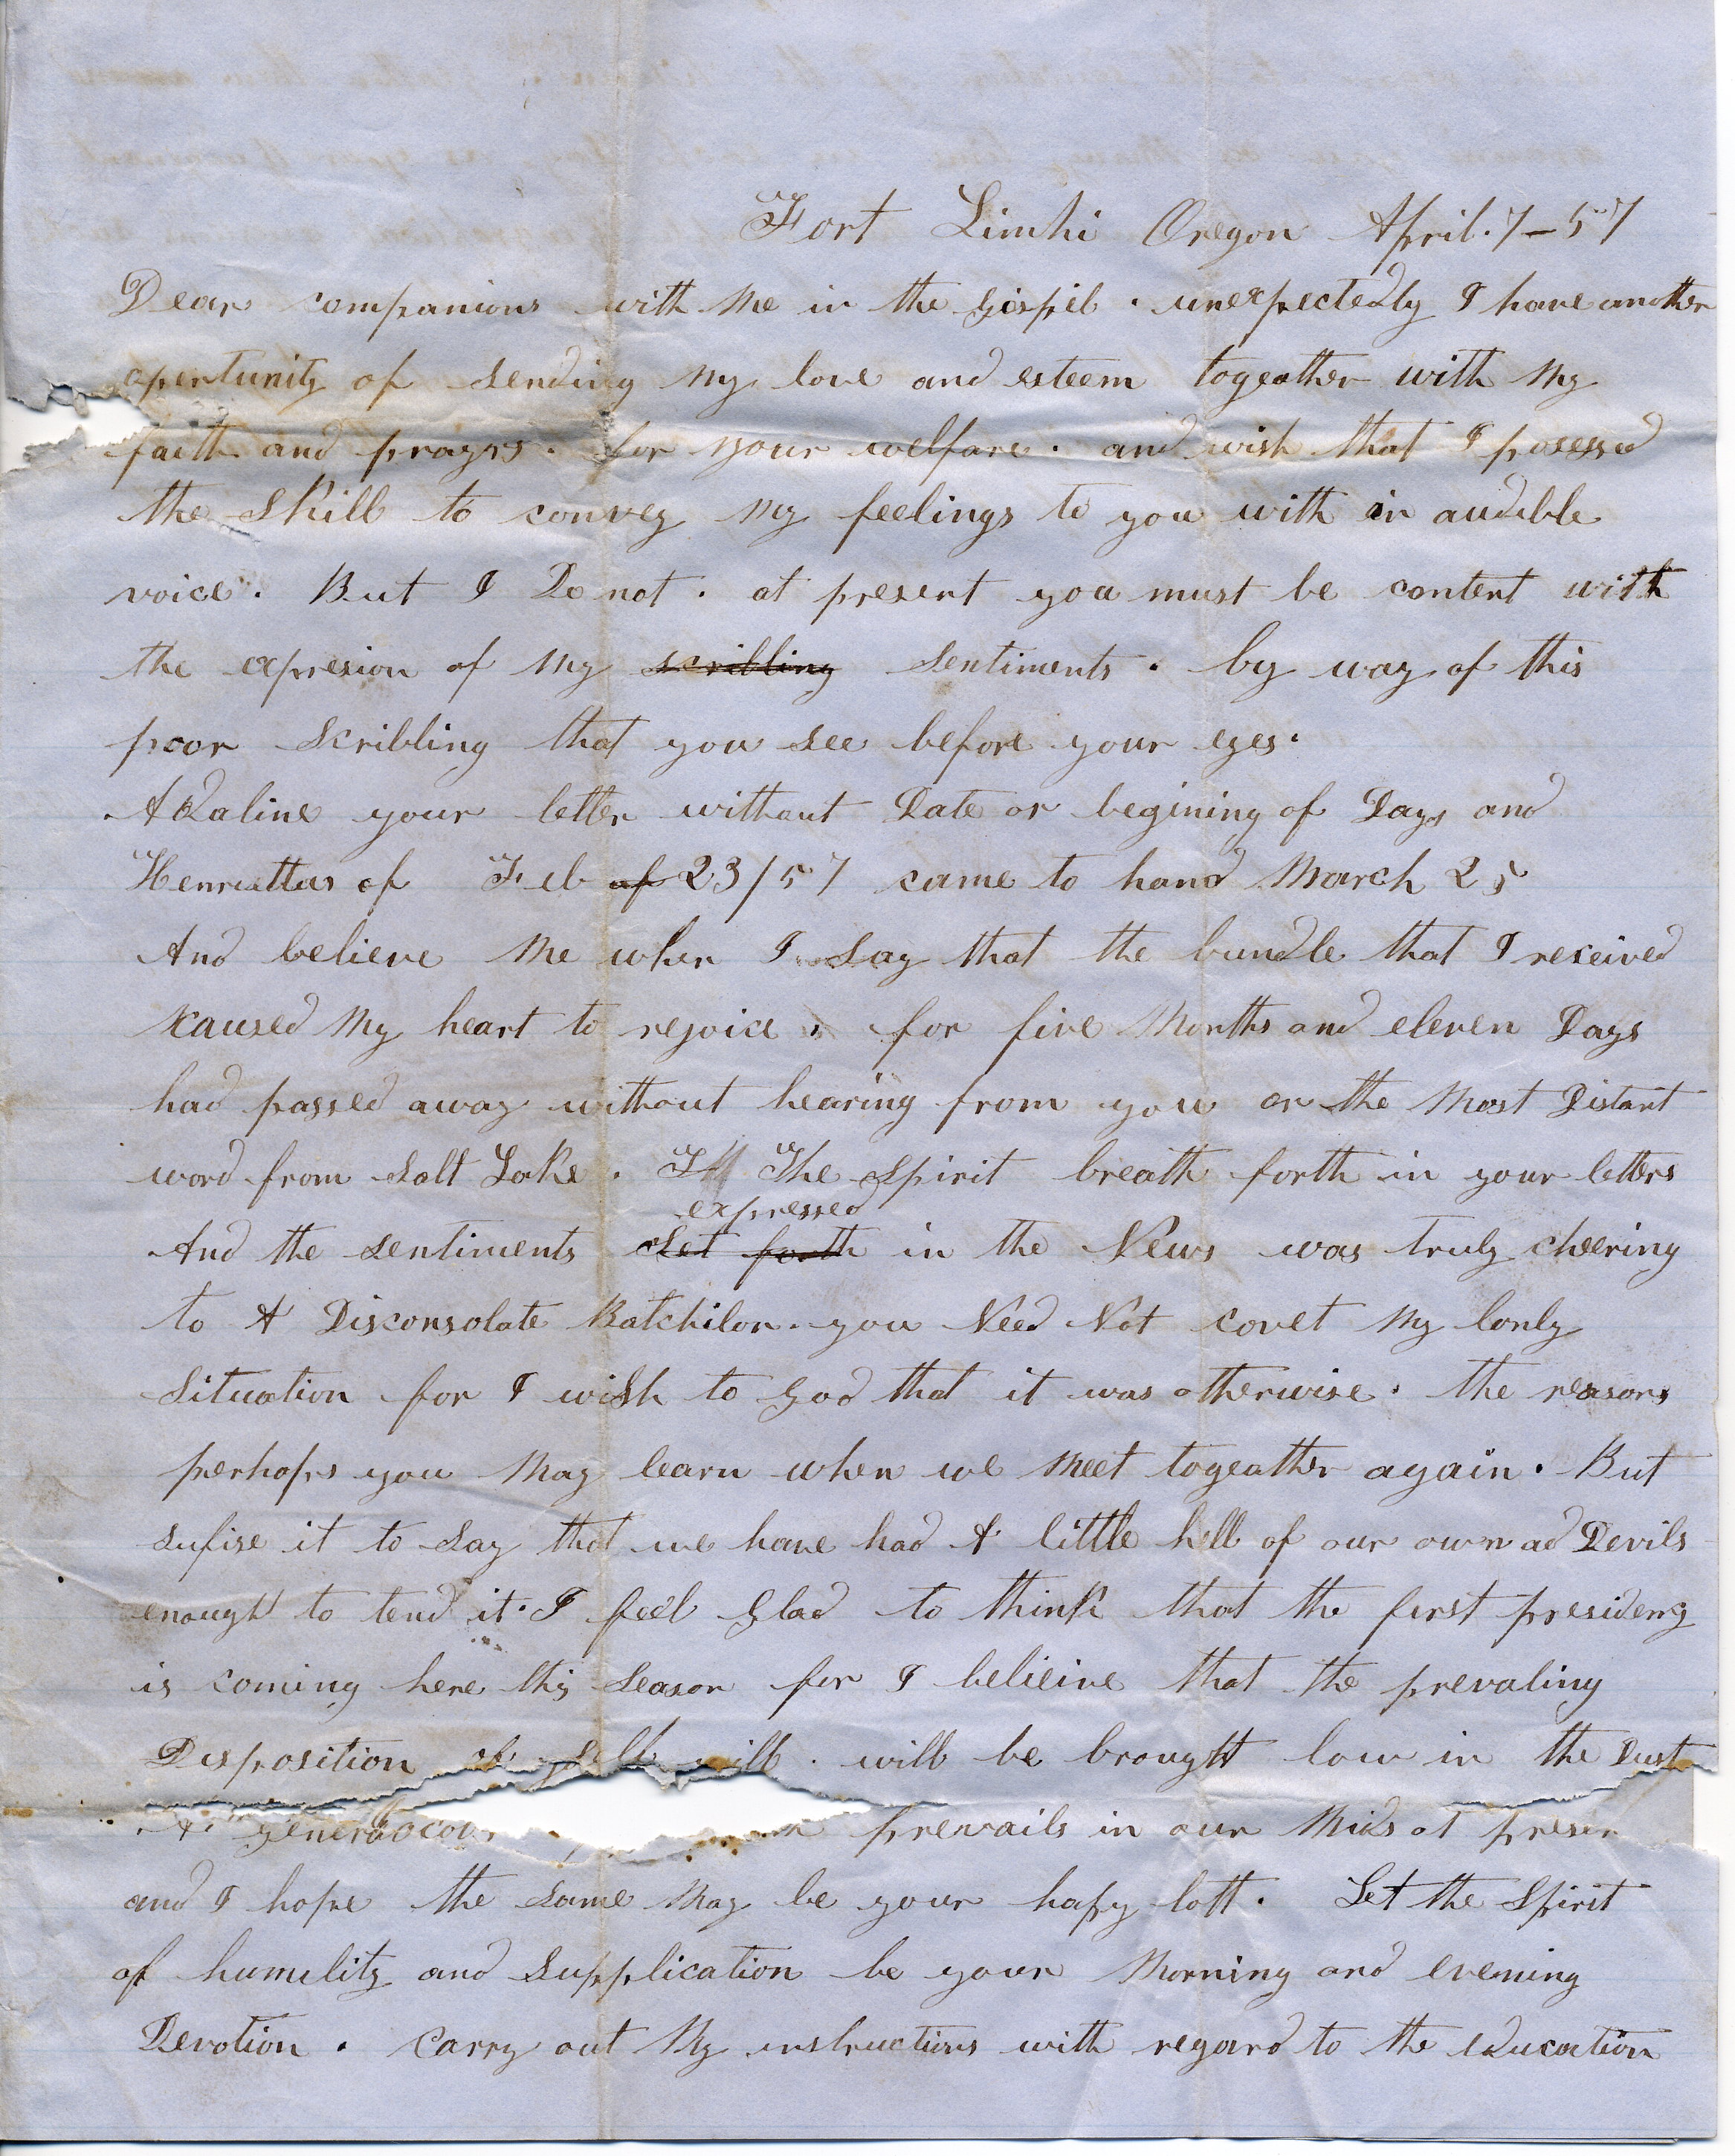 Fort Limhi Oregon April. 7-57
Dear companions with Me in the Gospel. unexpectedly I have another
opertunity of Sending My love and esteem togeather with My
faith and prayrs. for your welfare. and wish that I posessed
the Skill to convey My feelings to you with an audible
voice. But I Do not. at present you must be content with
the expresion of My scribling Sentiments. by way of this
poor Scribling that you See before your eyes.
Adaline your letter without Date or begining of Days and
Henriettas of Feb of 23/57 came to hand March 25
And believe Me when I Say that the bundle that I received
Kaused My heart to rejoice, for five Months and eleven Days
had passed away without hearing from you or the Most Distant
word from Salt Lake. The Spirit breath forth in your letters
expressed
And the Sentiments Set forth in the News was truly cheering
to A Disconsolate Batchilor. you Need Not covet My lonly
Situation for I wish to God that it was otherwise. the reasons
perhaps you May learn when we Meet togeather again. But
Sufise it to Say that we have had A little hell of our own ad Devils
enough to tend it. I feel Glad to think that the first presideny
is coming here this Season for I belieive that the prevaling
Disposition of Self will. will be brought low in the Dust
A prevails in our Mids at presen
and I hope the Same May be your hapy lott. Let the Spirit
of humility and Supplication be your Morning and evening
Devotion. Carry out My instructions with regard to the education